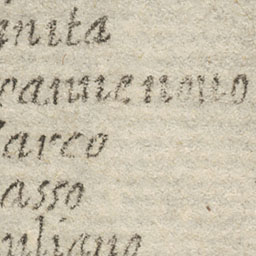 anita
ranne nouo
arco
asso
uliano